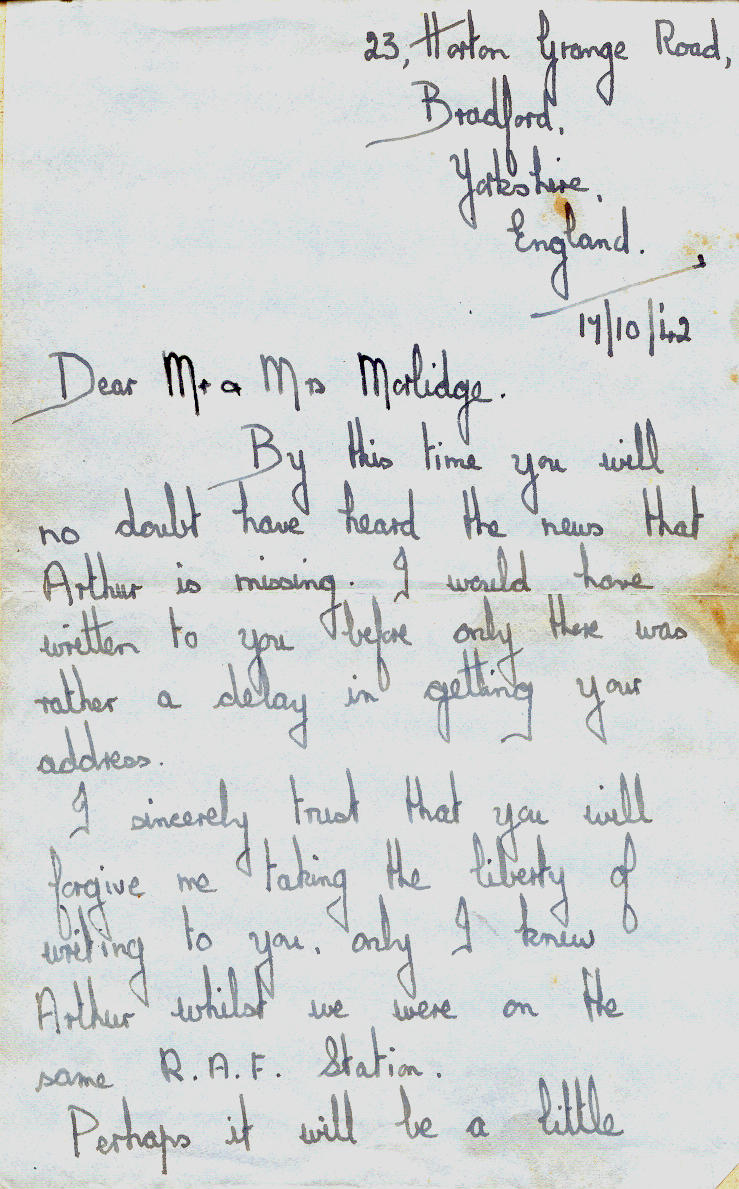 23, Horton Grange Road,
Bradford,
Yorkshire,
England.
17/10/42
Dear Mr & Mrs Morlidge.
By this time you will
no doubt have heard the news that
Arthur is missing. I would have
written to you before only there was
rather a delay in getting your
address.
I sincerely trust that you will
forgive me taking the liberty of
writing to you, only I knew
Arthur whilst we were on the
same R.A.F. Station.
Perhaps it will be a little